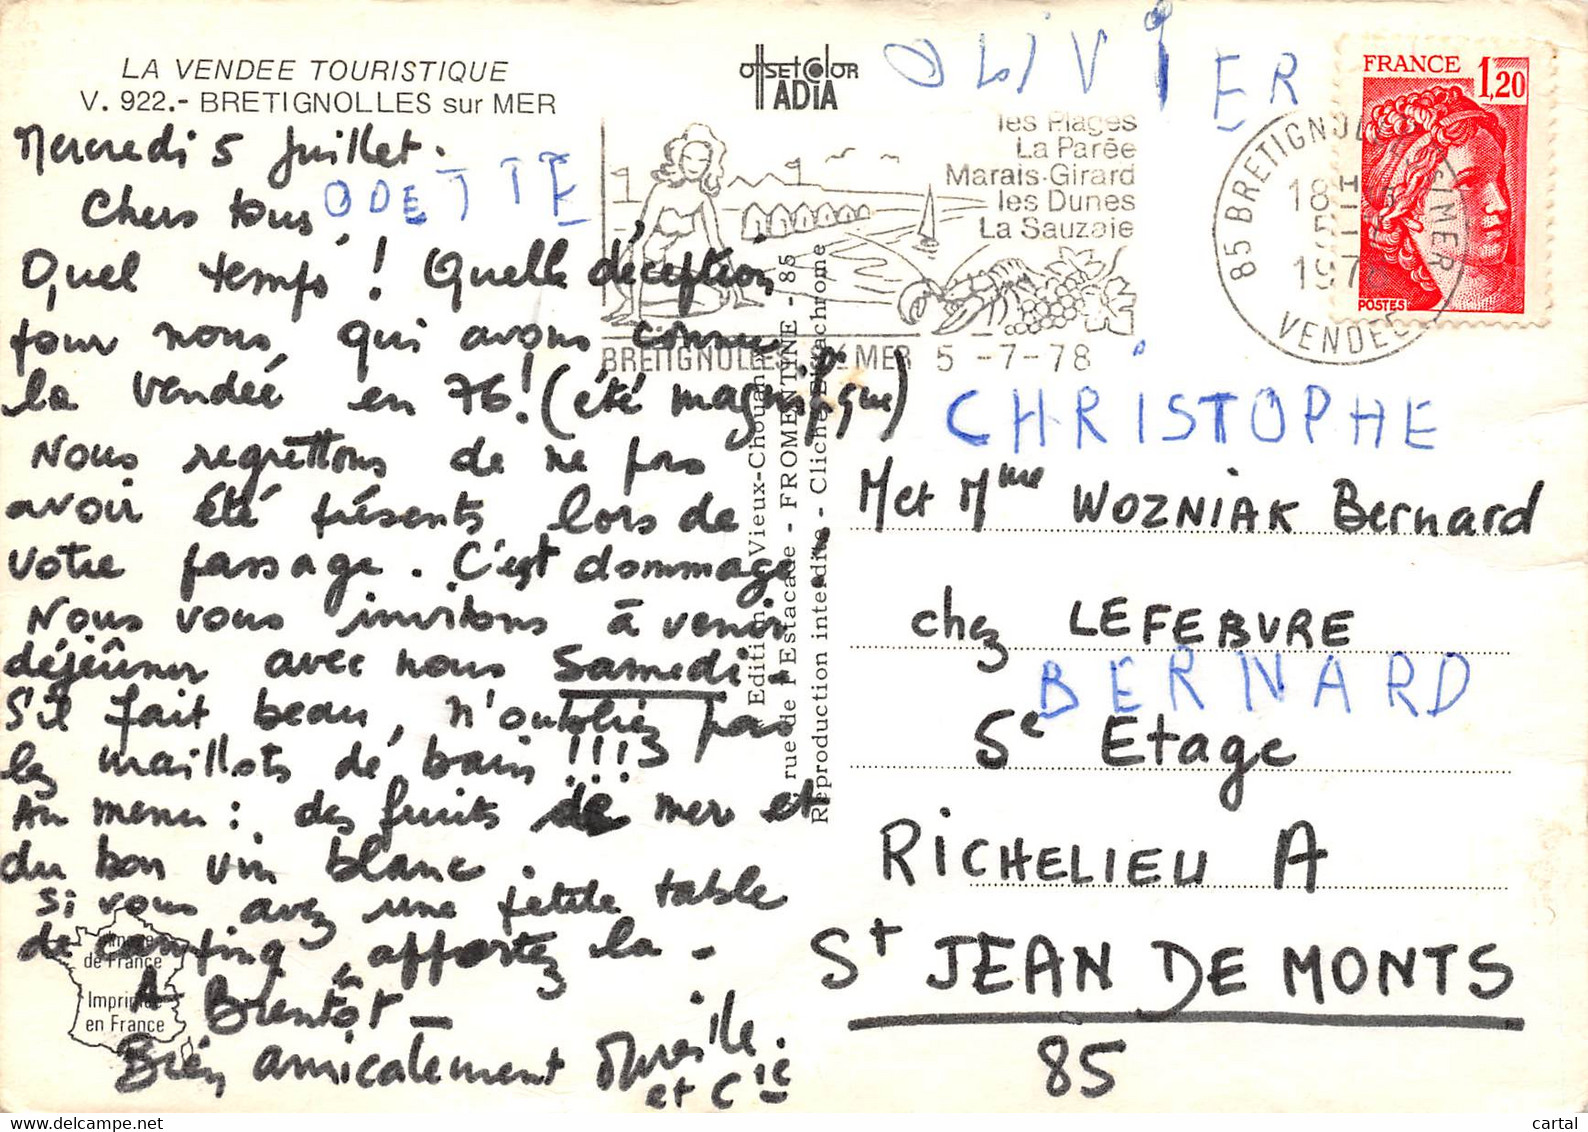 LA VENDEE TOURISTIQUE
V. 922.- BRETIGNOLLES sur MER
Mercredi 5 Juillet.
Chers tous
Quel temps ! Quelle déception
pour nous, qui avons connu
la Vendée en 76! (été magnifique)
Nous regrettons de ne pas
avoir été présents lors de
votre passage. C'est dommage
Nous vous invitons à venir
déjeûner avec nous Samedi -
S'il fait beau, n'oubliez pas
les maillots de bain !!!
Au menu : des fruits de mer et
du bon vin blanc.
Si vous avez une petite table
de camping, apportez la -
A Bientôt -
Bien amicalement Mireille.
et Cie
ODETTE
OLIVIER
CHRISTOPHE
BERNARD
offset color
ADIA
les Plages
La Parée
Marais-Girard
les Dunes
La Sauzaie
BRETIGNOLLES S/ MER 5 -7-78
85 BRETIGNOLLES S/MER
18H
5-7
1978
VENDEE
FRANCE 1,20
POSTES
Edition Vieux-Chouan
rue de l'Estacade - FROMENTINE - 85
Reproduction interdite - Cliché Dynachrome
M et Mme WOZNIAK Bernard
chez LEFEBVRE
5e Etage
RICHELIEU A
St JEAN DE MONTS
85
Image
de France
Imprimée
en France
cartal